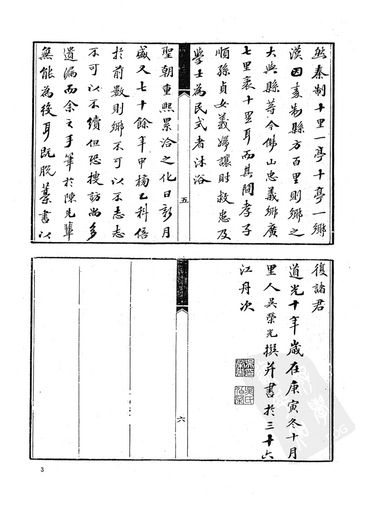 然秦制十里一亭十亭一鄉
漢因秦制縣方百里則鄉之
大與縣等今佛山忠義鄉廣
七里袤十里耳而其間孝子
順孫貞女義婦讓財救患及
學士為民式者沐浴
聖朝重熙累洽之化日新月
盛又七十餘年甲榜乙科倍
於前數則鄉不可以不志志
不可以不續但恐搜訪尚多
遺漏而余之手筆於陳先輩
無能為後耳既脫藁書以
五
復諸君
道光十年歲在庚寅冬十月
里人吳榮光撰并書於三十六
江丹次
六
3